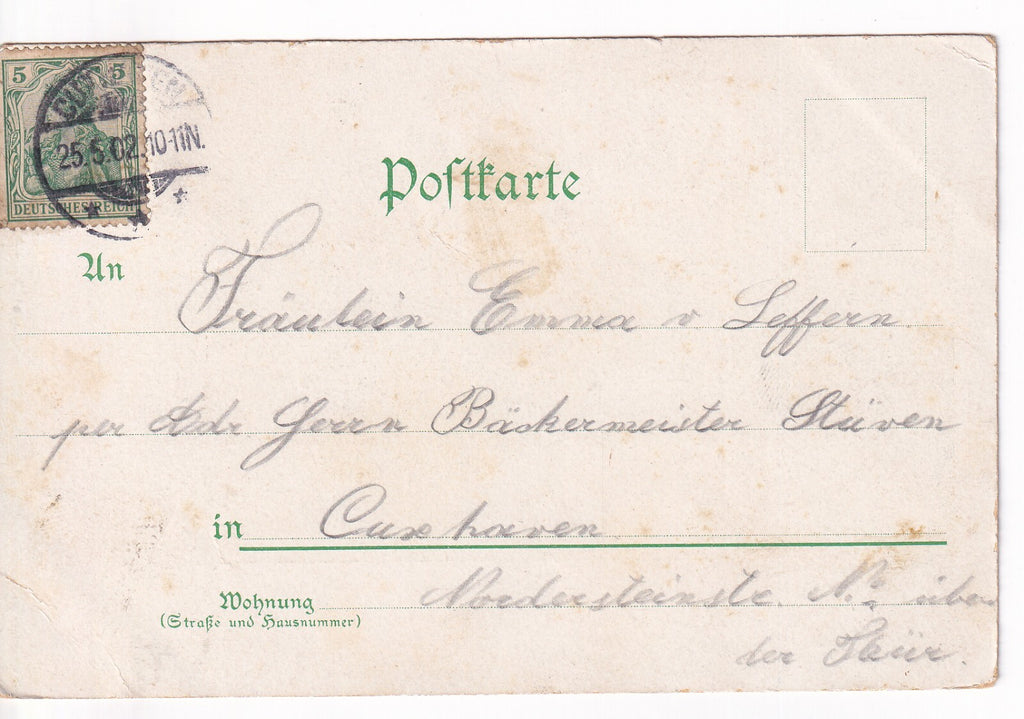 5 5
DEUTSCHES REICH
25.5.02. 10-11N.
Postkarte
An
Fräulein Emma v Seffern
per Adr Herrn Bäckermeister Stüven
in Cuxhaven
Wohnung Nordersteinstr. No über
(Straße und Hausnummer)
der Thür.